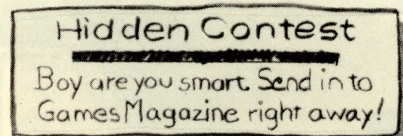 Hidden Contest
Boy are you smart. Send in to
Games Magazine right away!